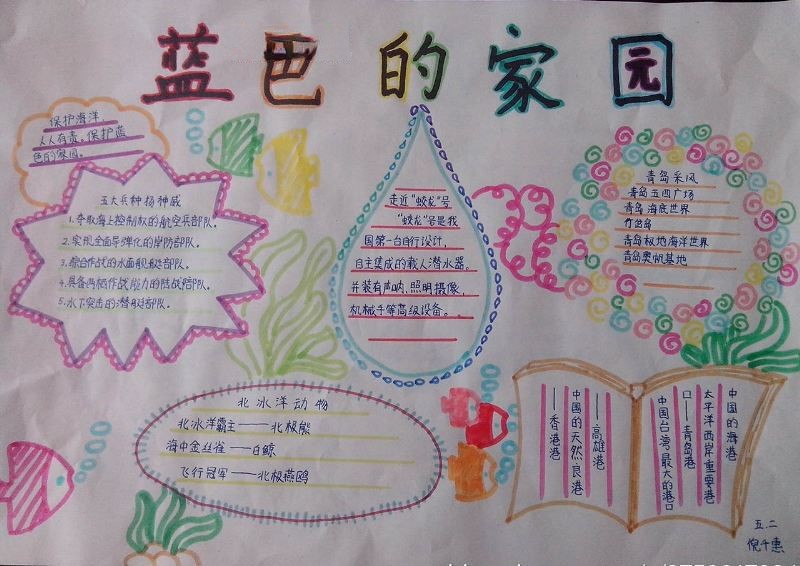 蓝色的家园
保护海洋，
人人有责。保护蓝
色的家园。
五大兵种扬神威
1.夺取海上控制权的航空兵部队。
2.实现全面导弹化的岸防部队。
3.综合作战的水面舰艇部队。
4.具备两栖作战能力的陆战部队。
5.水下突击的潜艇部队。
走近“蛟龙”号
“蛟龙”号是我
国第一台自行设计、
自主集成的载人潜水器。
并装有声呐、照明摄像、
机械手等高级设备。
青岛采风
青岛五四广场
青岛海底世界
竹岔岛
青岛极地海洋世界
青岛奥帆基地
北冰洋动物
北冰洋霸主——北极熊
海中金丝雀——白鲸
飞行冠军——北极燕鸥
中国的海港
太平洋西岸重要港
口——青岛港
中国台湾最大的港口
——高雄港
中国的天然良港
——香港港
五.二
倪千惠